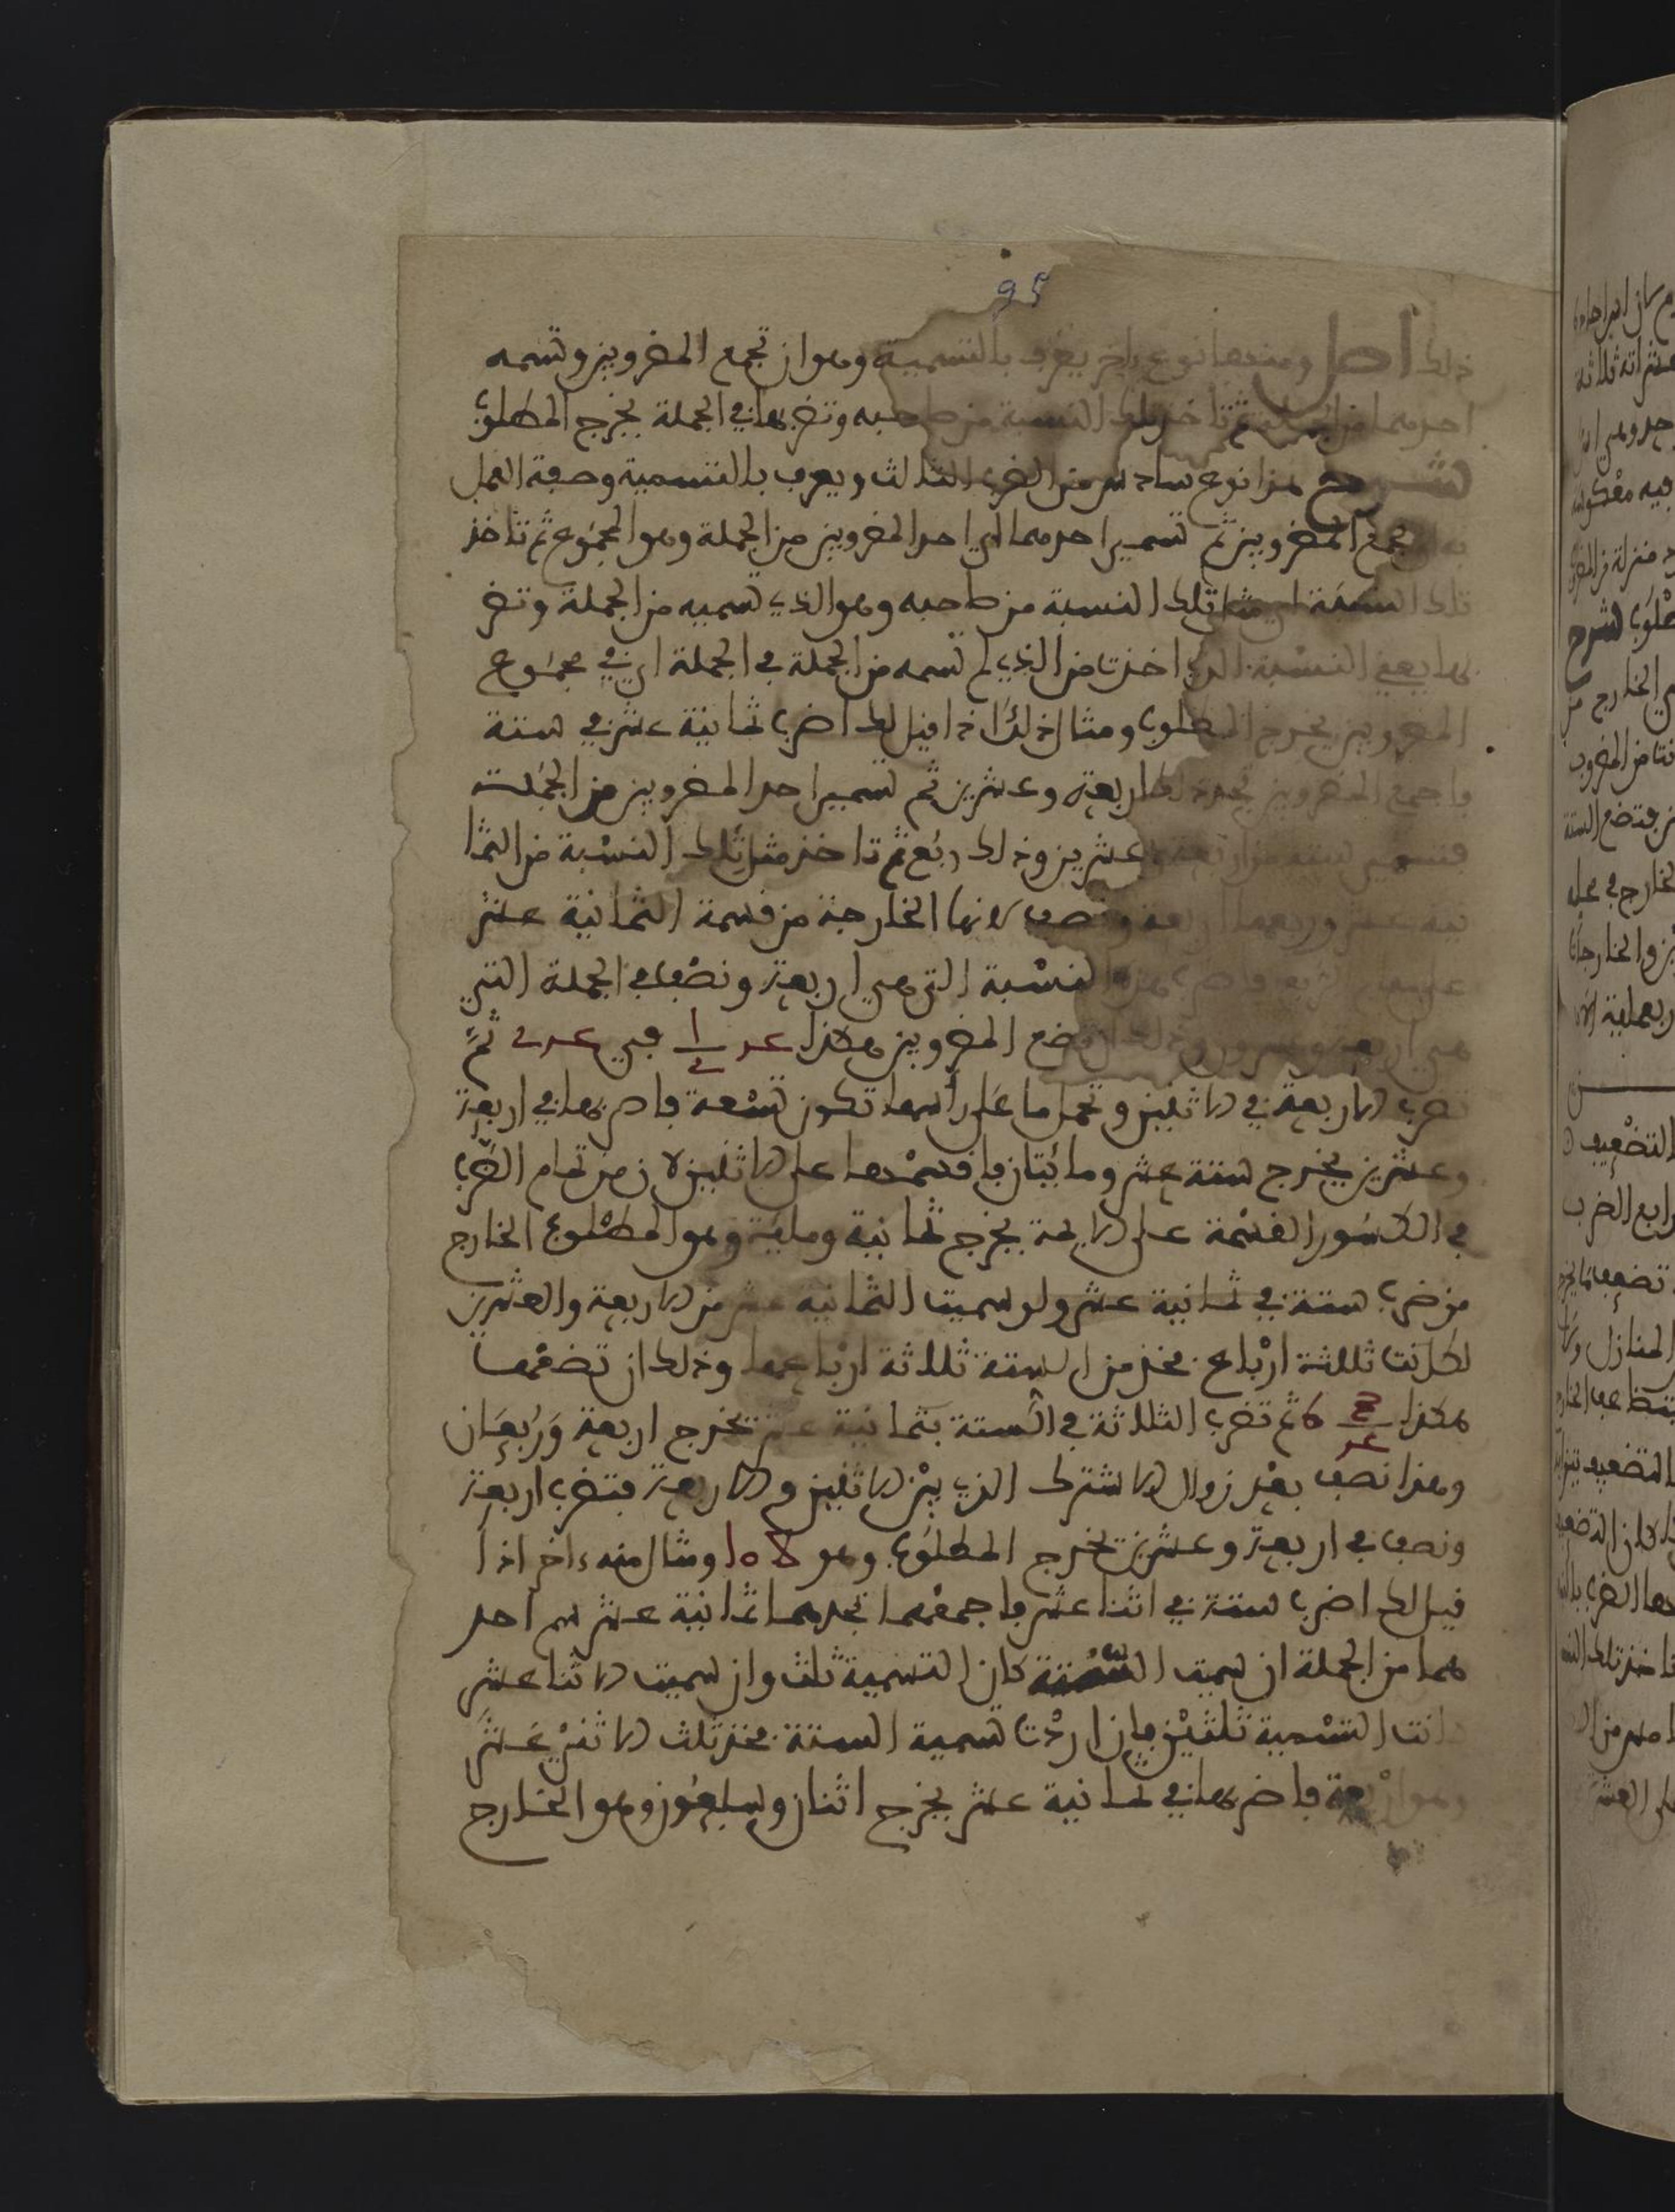 95
ذلك اصل ومنها نوع ءاخر يعرف بالتسمية وهو ان تجمع المضروبين وتسمي
احدهما من الجملة ثم تاخذ تلك النسبة من صاحبه وتضربها في الجملة يخرج المطلوب
الشرح هذا نوع سادس من الضرب الثالث ويعرف بالتسمية وصفة العمل
به ان تجمع المضروبين ثم تسمي احدهما اي احد المضروبين من الجملة وهو المجموع ثم تاخذ
تلك النسبة اي مثل تلك النسبة من صاحبه وهو الذي لم تسميه من الجملة وتضر
بها يعني النسبة التي اخذت من الذي لم تسمه من الجملة في الجملة اي في مجموع
المضروبين يخرج المطلوب ومثال ذلك اذا قيل لك اضرب ثمانية عشر في ستة
فاجمع المضروبين تجد ذلك اربعة وعشرين ثم تسمي احد المضروبين من الجملة
فتسمي ستة من اربعة وعشرين وذلك ربع ثم تاخذ مثل تلك النسبة من الثما
نية عشر وربعها اربعة ونصف لانها الخارجة من قسمة الثمانية عشر
على مقام الربع فاضرب هذه النسبة التي هي اربعة ونصف في الجملة التي
هي اربعة وعشرون وذلك ان تضع المضروبين هكذا 4 1/2 في 24 ثم
تضرب الاربعة في الاثنين وتحمل ما على راسها تكون تسعة فاضربها في اربعة
وعشرين يخرج ستة عشر ومائتان فاقسمها على الاثنين لان من تمام الضرب
في الكسور القسمة على الايمة يخرج ثمانية ومائة وهو المطلوب الخارج
من ضرب ستة في ثمانية عشر ولو سميت الثمانية عشر من الاربعة والعشرين
لكانت ثلاثة ارباع فخذ من الستة ثلاثة ارباعها وذلك ان تضعها
هكذا 3/4 6 ثم تضرب الثلاثة في الستة بثمانية عشر تخرج اربعة وربعان
وهذا نصف بعد زوال الاشتراك الذي بين الاثنين والاربعة فتضرب اربعة
ونصف في اربعة وعشرين تخرج المطلوب وهو 108 ومثال منه ءاخر اذا
قيل لك اضرب ستة في اثنا عشر فاجمعهما تجدهما ثمانية عشر سم احد
هما من الجملة ان سميت الستة كان التسمية ثلث وان سميت الاثنا عشر
كانت التسمية ثلثين فان اردت تسمية الستة فخذ ثلث الاثني عشر
وهو اربعة فاضربها في ثمانية عشر يخرج اثنان وسبعون وهو الخارج